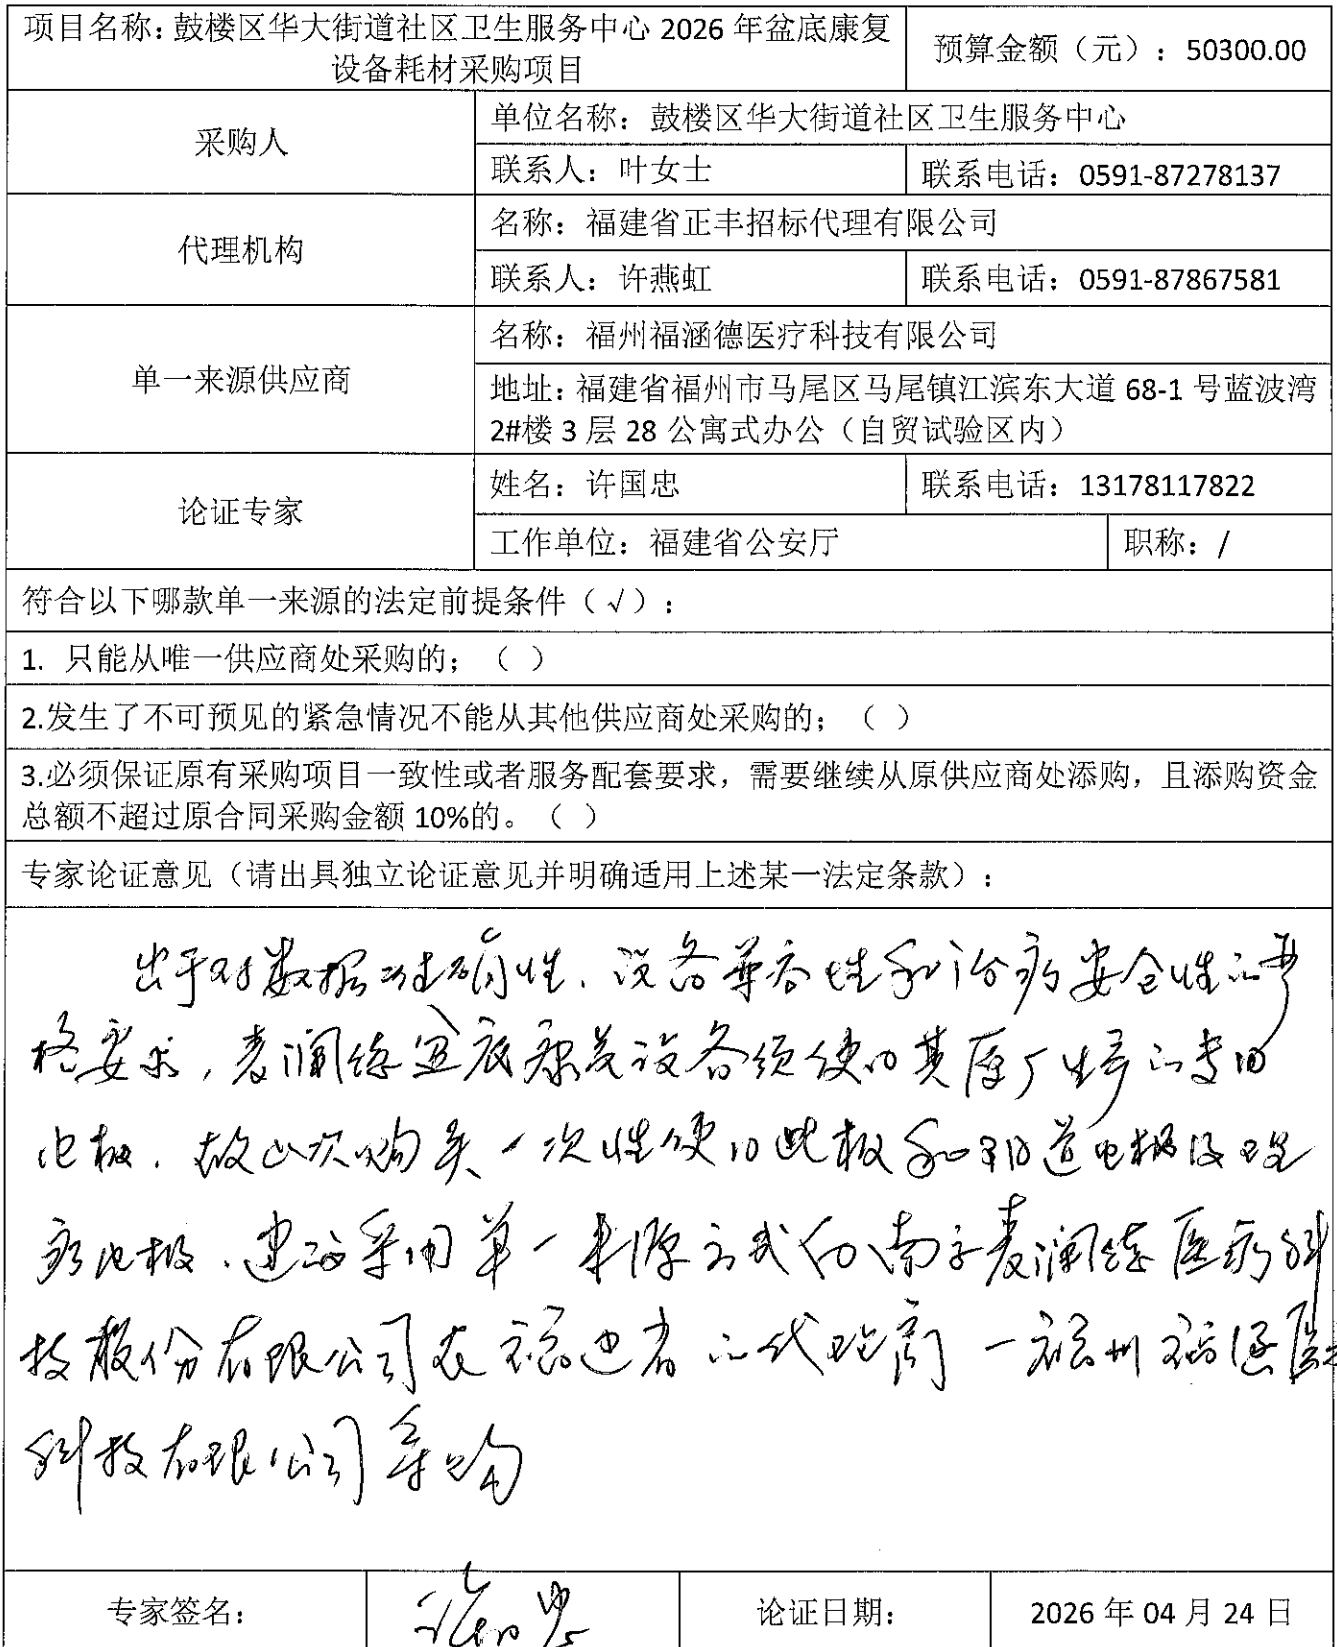 项目名称：鼓楼区华大街道社区卫生服务中心 2026 年盆底康复
设备耗材采购项目
预算金额（元）：50300.00
采购人
单位名称：鼓楼区华大街道社区卫生服务中心
联系人：叶女士
联系电话：0591-87278137
代理机构
名称：福建省正丰招标代理有限公司
联系人：许燕虹
联系电话：0591-87867581
单一来源供应商
名称：福州福涵德医疗科技有限公司
地址：福建省福州市马尾区马尾镇江滨东大道 68-1 号蓝波湾
2#楼 3 层 28 公寓式办公（自贸试验区内）
论证专家
姓名：许国忠
联系电话：13178117822
工作单位：福建省公安厅
职称：/
符合以下哪款单一来源的法定前提条件（√）：
1. 只能从唯一供应商处采购的；（ ）
2.发生了不可预见的紧急情况不能从其他供应商处采购的；（ ）
3.必须保证原有采购项目一致性或者服务配套要求，需要继续从原供应商处添购，且添购资金
总额不超过原合同采购金额 10%的。（ ）
专家论证意见（请出具独立论证意见并明确适用上述某一法定条款）：
出于对数据准确性、设备兼容性和治病安全性的严
格要求，麦澜德盆底康复设备须使用其原厂生产的专用
电极．故此次购买一次性使用电极和阴道电极及理
疗电极．建议采用单一来源方式向南京麦澜德医疗科
技股份有限公司在福建省的代理商－福州福涵医
科技有限公司采购
专家签名：
许国忠
论证日期：
2026 年 04 月 24 日